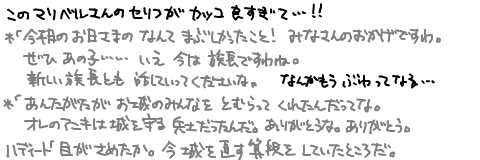 このマリベルさんのセリフがカッコ良すぎて…!!
*「今朝のお日さまの なんて まぶしかったこと! みなさんのおかげですわ。
ぜひ あの子…… いえ 今は 族長ですわね。
新しい族長とも 話していってくださいな。 なんかもう ぶわってなる…
*「あんたがたが お城のみんなを とむらって くれたんだってな。
オレのアニキは城を守る 兵士だったんだ。ありがとうな。ありがとう。
ハディート「目がさめたか。今 城を直す算段を していたところだ。